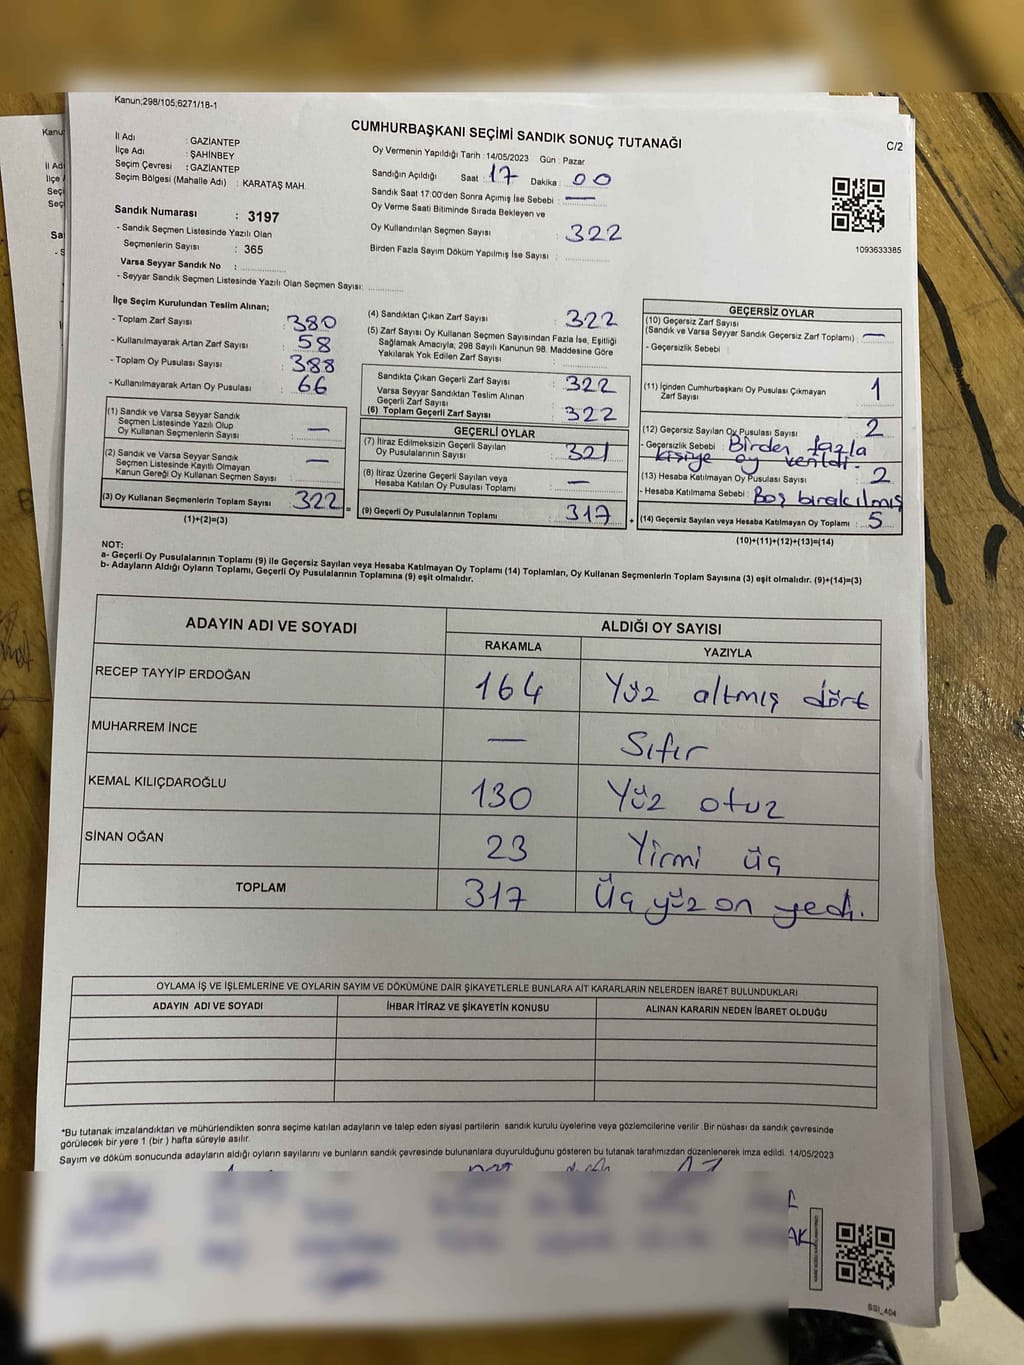 Kanun;298/105,6271/18-1
CUMHURBAŞKANI SEÇİMİ SANDIK SONUÇ TUTANAĞI
C/2
İl Adı : GAZİANTEP
İlçe Adı : ŞAHİNBEY
Seçim Çevresi : GAZİANTEP
Seçim Bölgesi (Mahalle Adı) : KARATAŞ MAH.
Sandık Numarası : 3197
- Sandık Seçmen Listesinde Yazılı Olan
Seçmenlerin Sayısı : 365
Varsa Seyyar Sandık No :
- Seyyar Sandık Seçmen Listesinde Yazılı Olan Seçmen Sayısı:
Oy Vermenin Yapıldığı Tarih : 14/05/2023 Gün : Pazar
Sandığın Açıldığı Saat : 17 Dakika : 00
Sandık Saat 17:00'den Sonra Açımış İse Sebebi : —
Oy Verme Saati Bitiminde Sırada Bekleyen ve
Oy Kullandırılan Seçmen Sayısı : 322
Birden Fazla Sayım Döküm Yapılmış İse Sayısı :
1093633385
İlçe Seçim Kurulundan Teslim Alınan;
- Toplam Zarf Sayısı : 380
- Kullanılmayarak Artan Zarf Sayısı : 58
- Toplam Oy Pusulası Sayısı : 388
- Kullanılmayarak Artan Oy Pusulası : 66
(1) Sandık ve Varsa Seyyar Sandık
Seçmen Listesinde Yazılı Olup
Oy Kullanan Seçmenlerin Sayısı : —
(2) Sandık ve Varsa Seyyar Sandık
Seçmen Listesinde Kayıtlı Olmayan
Kanun Gereği Oy Kullanan Seçmen Sayısı : —
(3) Oy Kullanan Seçmenlerin Toplam Sayısı : 322 =
(1)+(2)=(3)
(4) Sandıktan Çıkan Zarf Sayısı : 322
(5) Zarf Sayısı Oy Kullanan Seçmen Sayısından Fazla İse, Eşitliği
Sağlamak Amacıyla; 298 Sayılı Kanunun 98. Maddesine Göre
Yakılarak Yok Edilen Zarf Sayısı :
Sandıkta Çıkan Geçerli Zarf Sayısı : 322
Varsa Seyyar Sandıktan Teslim Alınan
Geçerli Zarf Sayısı
(6) Toplam Geçerli Zarf Sayısı : 322
GEÇERLİ OYLAR
(7) İtiraz Edilmeksizin Geçerli Sayılan
Oy Pusulalarının Sayısı : 321
(8) İtiraz Üzerine Geçerli Sayılan veya
Hesaba Katılan Oy Pusulası Toplamı : —
(9) Geçerli Oy Pusulalarının Toplamı : 317 +
GEÇERSİZ OYLAR
(10) Geçersiz Zarf Sayısı
(Sandık ve Varsa Seyyar Sandık Geçersiz Zarf Toplamı) : —
- Geçersizlik Sebebi :
(11) İçinden Cumhurbaşkanı Oy Pusulası Çıkmayan
Zarf Sayısı : 1
(12) Geçersiz Sayılan Oy Pusulası Sayısı : 2
- Geçersizlik Sebebi : Birden fazla
kişiye oy verildi.
(13) Hesaba Katılmayan Oy Pusulası Sayısı : 2
- Hesaba Katılmama Sebebi : Boş bırakılmış
(14) Geçersiz Sayılan veya Hesaba Katılmayan Oy Toplamı : 5
(10)+(11)+(12)+(13)=(14)
NOT:
a- Geçerli Oy Pusulalarının Toplamı (9) ile Geçersiz Sayılan veya Hesaba Katılmayan Oy Toplamı (14) Toplamları, Oy Kullanan Seçmenlerin Toplam Sayısına (3) eşit olmalıdır. (9)+(14)=(3)
b- Adayların Aldığı Oyların Toplamı, Geçerli Oy Pusulalarının Toplamına (9) eşit olmalıdır.
ADAYIN ADI VE SOYADI ALDIĞI OY SAYISI
RAKAMLA YAZIYLA
RECEP TAYYİP ERDOĞAN 164 Yüz altmış dört
MUHARREM İNCE — Sıfır
KEMAL KILIÇDAROĞLU 130 Yüz otuz
SİNAN OĞAN 23 Yirmi üç
TOPLAM 317 Üç yüz on yedi.
OYLAMA İŞ VE İŞLEMLERİNE VE OYLARIN SAYIM VE DÖKÜMÜNE DAİR ŞİKAYETLERLE BUNLARA AİT KARARLARIN NELERDEN İBARET BULUNDUKLARI
ADAYIN ADI VE SOYADI İHBAR İTİRAZ VE ŞİKAYETİN KONUSU ALINAN KARARIN NEDEN İBARET OLDUĞU
*Bu tutanak imzalandıktan ve mühürlendikten sonra seçime katılan adayların ve talep eden siyasi partilerin sandık kurulu üyelerine veya gözlemcilerine verilir .Bir nüshası da sandık çevresinde
görülecek bir yere 1 (bir ) hafta süreyle asılır.
Sayım ve döküm sonucunda adayların aldığı oyların sayılarını ve bunların sandık çevresinde bulunanlara duyurulduğunu gösteren bu tutanak tarafımızdan düzenlenerek imza edildi. 14/05/2023